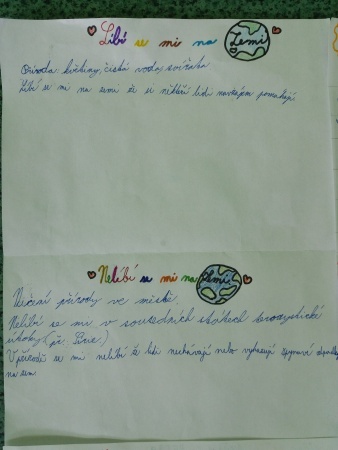 Líbí se mi na Zemi
Příroda, květiny, čistá voda, zvířata
Líbí se mi na zemi že si někteří lidi navzájem pomahají
Nelíbí se mi na Zemi
Ničení přírody ve městě.
Nelíbí se mi v sousedních státech teroristické
útoky (př. Sírie)
V přírodě se mi nelíbí že lidi nechávají nebo vyhazují odpadky
na zem.